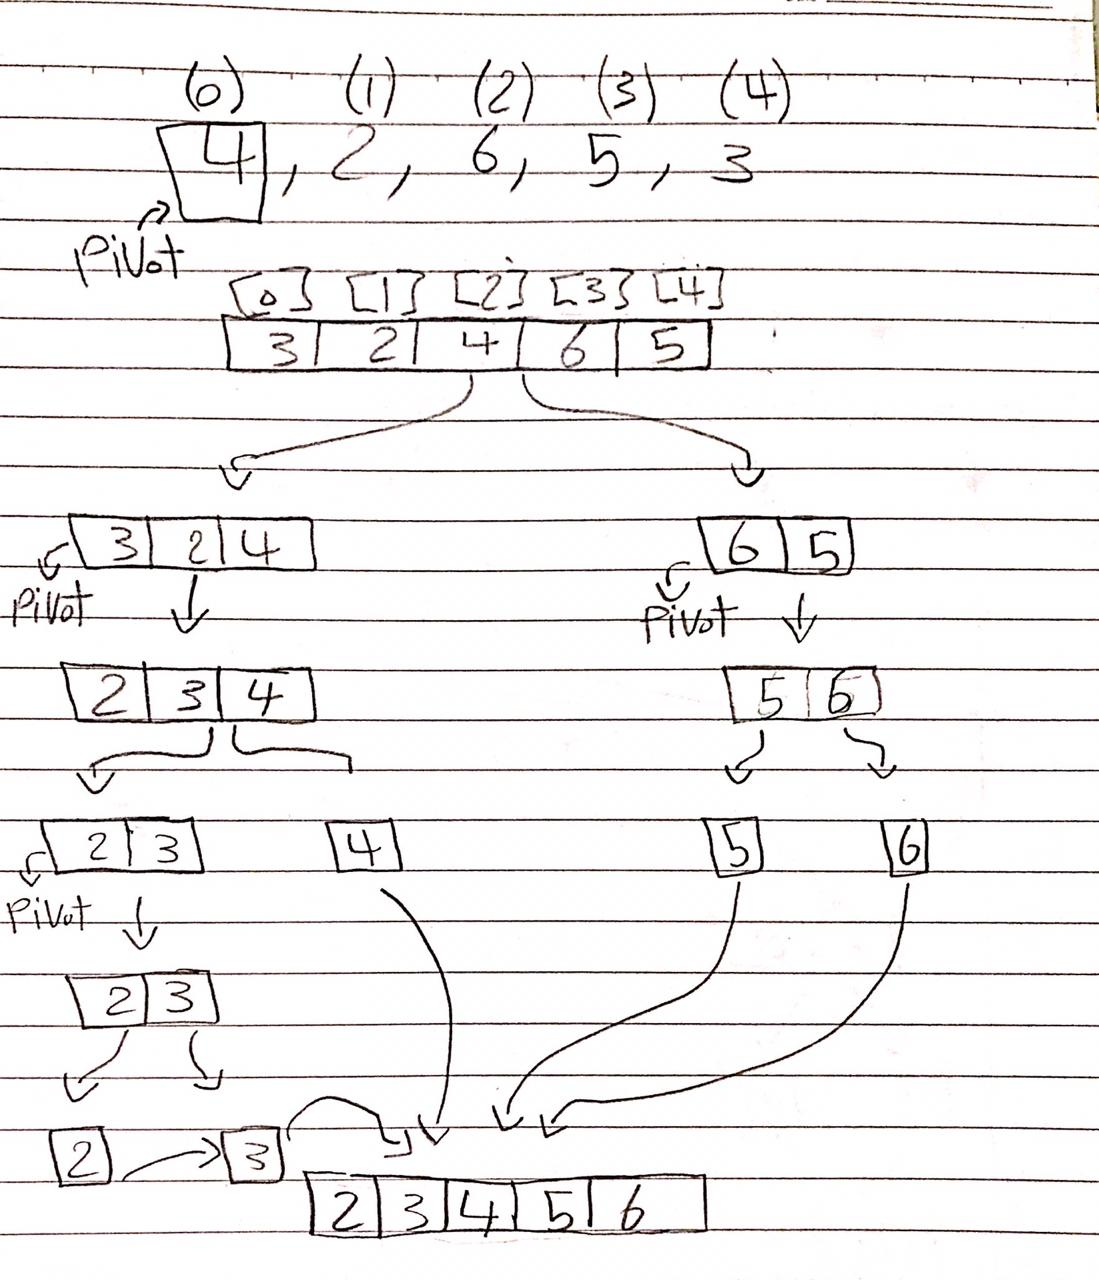 (0) (1) (2) (3) (4)
4, 2, 6, 5, 3
Pivot
[0] [1] [2] [3] [4]
3 2 4 6 5
3 2 4 6 5
Pivot Pivot
2 3 4 5 6
2 3 4 5 6
Pivot
2 3
2 3
2 3 4 5 6